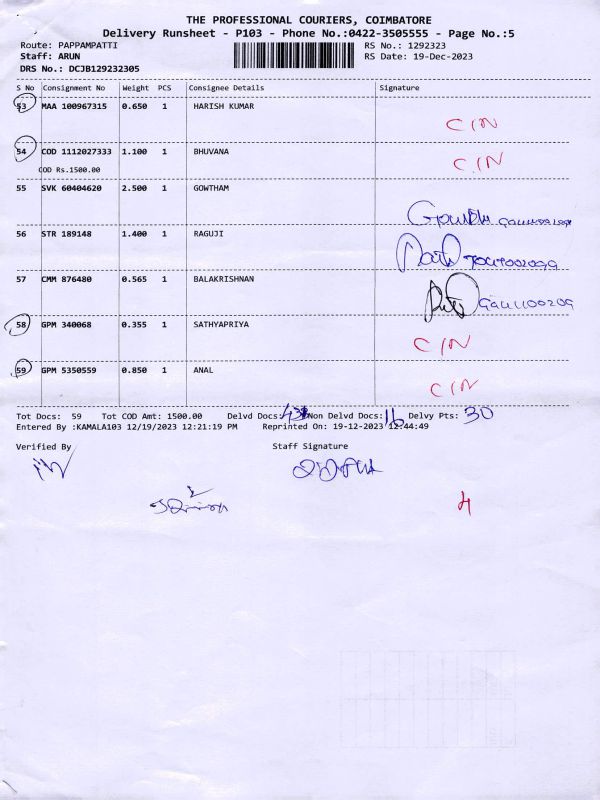 THE PROFESSIONAL COURIERS, COIMBATORE
Delivery Runsheet - P103 - Phone No.:0422-3505555 - Page No.:5
Route: PAPPAMPATTI RS No.: 1292323
Staff: ARUN RS Date: 19-Dec-2023
DRS No.: DCJB129232305
S No Consignment No Weight PCS Consignee Details Signature
53 MAA 100967315 0.650 1 HARISH KUMAR
C/N
54 COD 1112027333 1.100 1 BHUVANA
C/N
COD Rs.1500.00
55 SVK 60404620 2.500 1 GOWTHAM
56 STR 189148 1.400 1 RAGUJI
57 CMM 876480 0.565 1 BALAKRISHNAN
58 GPM 340068 0.355 1 SATHYAPRIYA
C/N
59 GPM 5350559 0.850 1 ANAL
C/N
Tot Docs: 59 Tot COD Amt: 1500.00 Delvd Docs: 43 Non Delvd Docs: 16 Delvy Pts: 30
Entered By :KAMALA103 12/19/2023 12:21:19 PM Reprinted On: 19-12-2023 12:44:49
Verified By Staff Signature